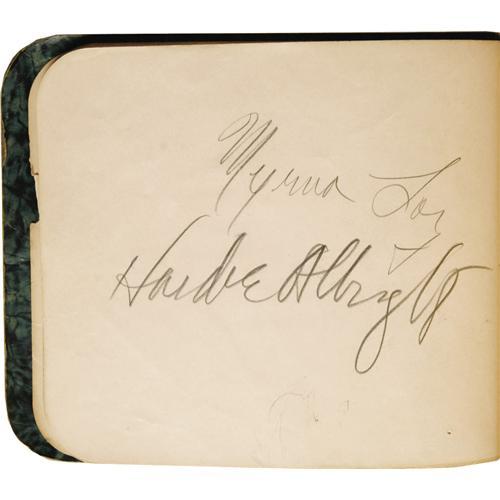 Myrna Loy
Hardie Albright